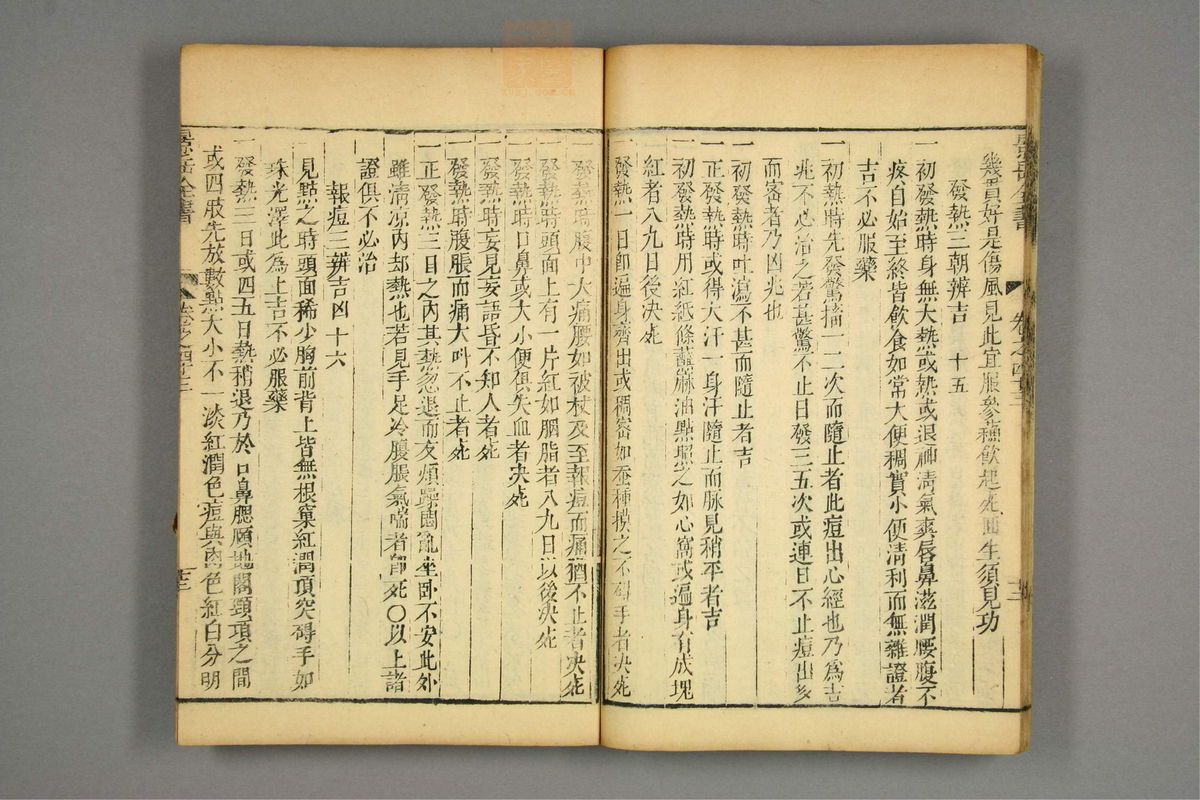 幾貫好是傷風見此宜服參蘇飲起死回生須見功
發熱三朝辨吉 十五
一初發熱時身無大熱或熱或退神清氣爽唇鼻滋潤腰腹不
疼自始至終皆飲食如常大便稠實小便清利而無雜證者
吉不必服藥
一初熱時先發驚搐一二次而隨止者此痘出心經也乃為吉
兆不必治之若甚驚不止日發三五次或連日不止痘出多
而密者乃凶兆也
一初發熱時吐瀉不甚而隨止者吉
一正發熱時或得大汗一身汗隨止而脉見稍平者吉
一初發熱時用紅紙條蘸蔴油點照之如心窩或遍身有成塊
紅者八九日後決死
一發熱一日即遍身齊出或稠密如蚕種摸之不碍手者决死
一發熱時腹中大痛腰如被杖及至報痘而痛猶不止者决死
一發熱時頭面上有一片紅如胭脂者八九日以後决死
一發熱時口鼻或大小便俱失血者决死
一發熱時妄見妄語昏不知人者死
一發熱時腹脹而痛大叫不止者死
一正發熱三日之內其熱忽退而反煩躁悶亂坐卧不安此外
雖清凉内却熱也若見手足冷腹脹氣喘者即死〇以上諸
證俱不必治
報痘三辨吉凶 十六
見點之時頭面稀少胸前背上皆無根窠紅潤頂突碍手如
珠光澤此為上吉不必服藥
一發熱三日或四五日熱稍退乃於口鼻腮頤地閣頸項之間
或四肢先放數點大小不一淡紅潤色痘與肉色紅白分明
景岳全書
卷之四十三
景岳全書
卷之四十三